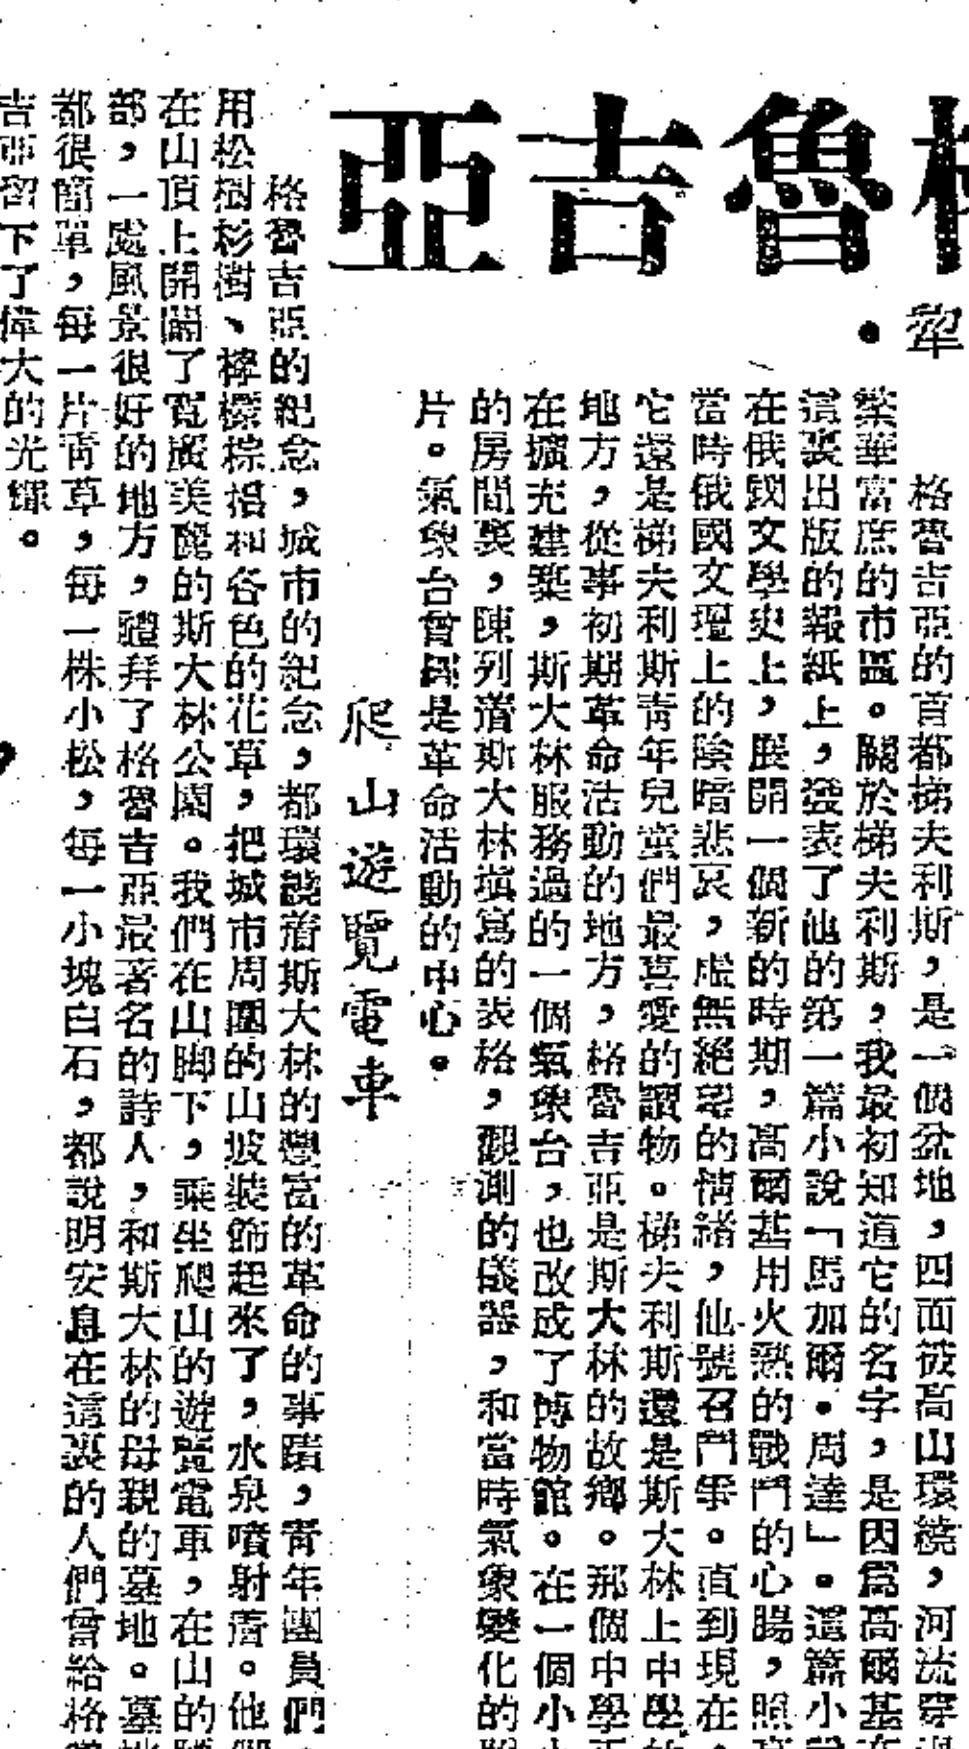 魯吉亞
格魯吉亞的首都梯夫利斯，是一個盆地，四面被高山環繞，河流穿過
繁華富庶的市區。關於梯夫利斯，我最初知道它的名字，是因爲高爾基在
這裏出版的報紙上，發表了他的第一篇小說「馬加爾・周達」。這篇小說
在俄國文學史上，展開一個新的時期，高爾基用火熱的戰鬥的心腸，照
當時俄國文壇上的陰暗悲哀，虛無絕望的情緒，他號召鬥爭。直到現在
它還是梯夫利斯青年兒童們最喜愛的讀物。梯夫利斯還是斯大林上中學的
地方，從事初期革命活動的地方，格魯吉亞是斯大林的故鄉。那個中學正
在擴充建築，斯大林服務過的一個氣象台，也改成了博物館。在一個小
的房間裏，陳列着斯大林填寫的表格，觀測的儀器，和當時氣象變化的
片。氣象台曾經是革命活動的中心。
爬山遊覽電車
格魯吉亞的紀念，城市的紀念，都環繞着斯大林的豐富的革命的事蹟，青年團員們
用松樹杉樹、樺樹棕梠和各色的花草，把城市周圍的山坡裝飾起來了，水泉噴射着。他們
在山頂上開闢了寬廣美麗的斯大林公園。我們在山脚下，乘坐爬山的遊覽電車，在山的
部，一處風景很好的地方，禮拜了格魯吉亞最著名的詩人，和斯大林的母親的墓地。墓地
都很簡單，每一片靑草，每一株小松，每一小塊白石，都說明安息在這裏的人們曾給格魯
吉亞留下了偉大的光輝。